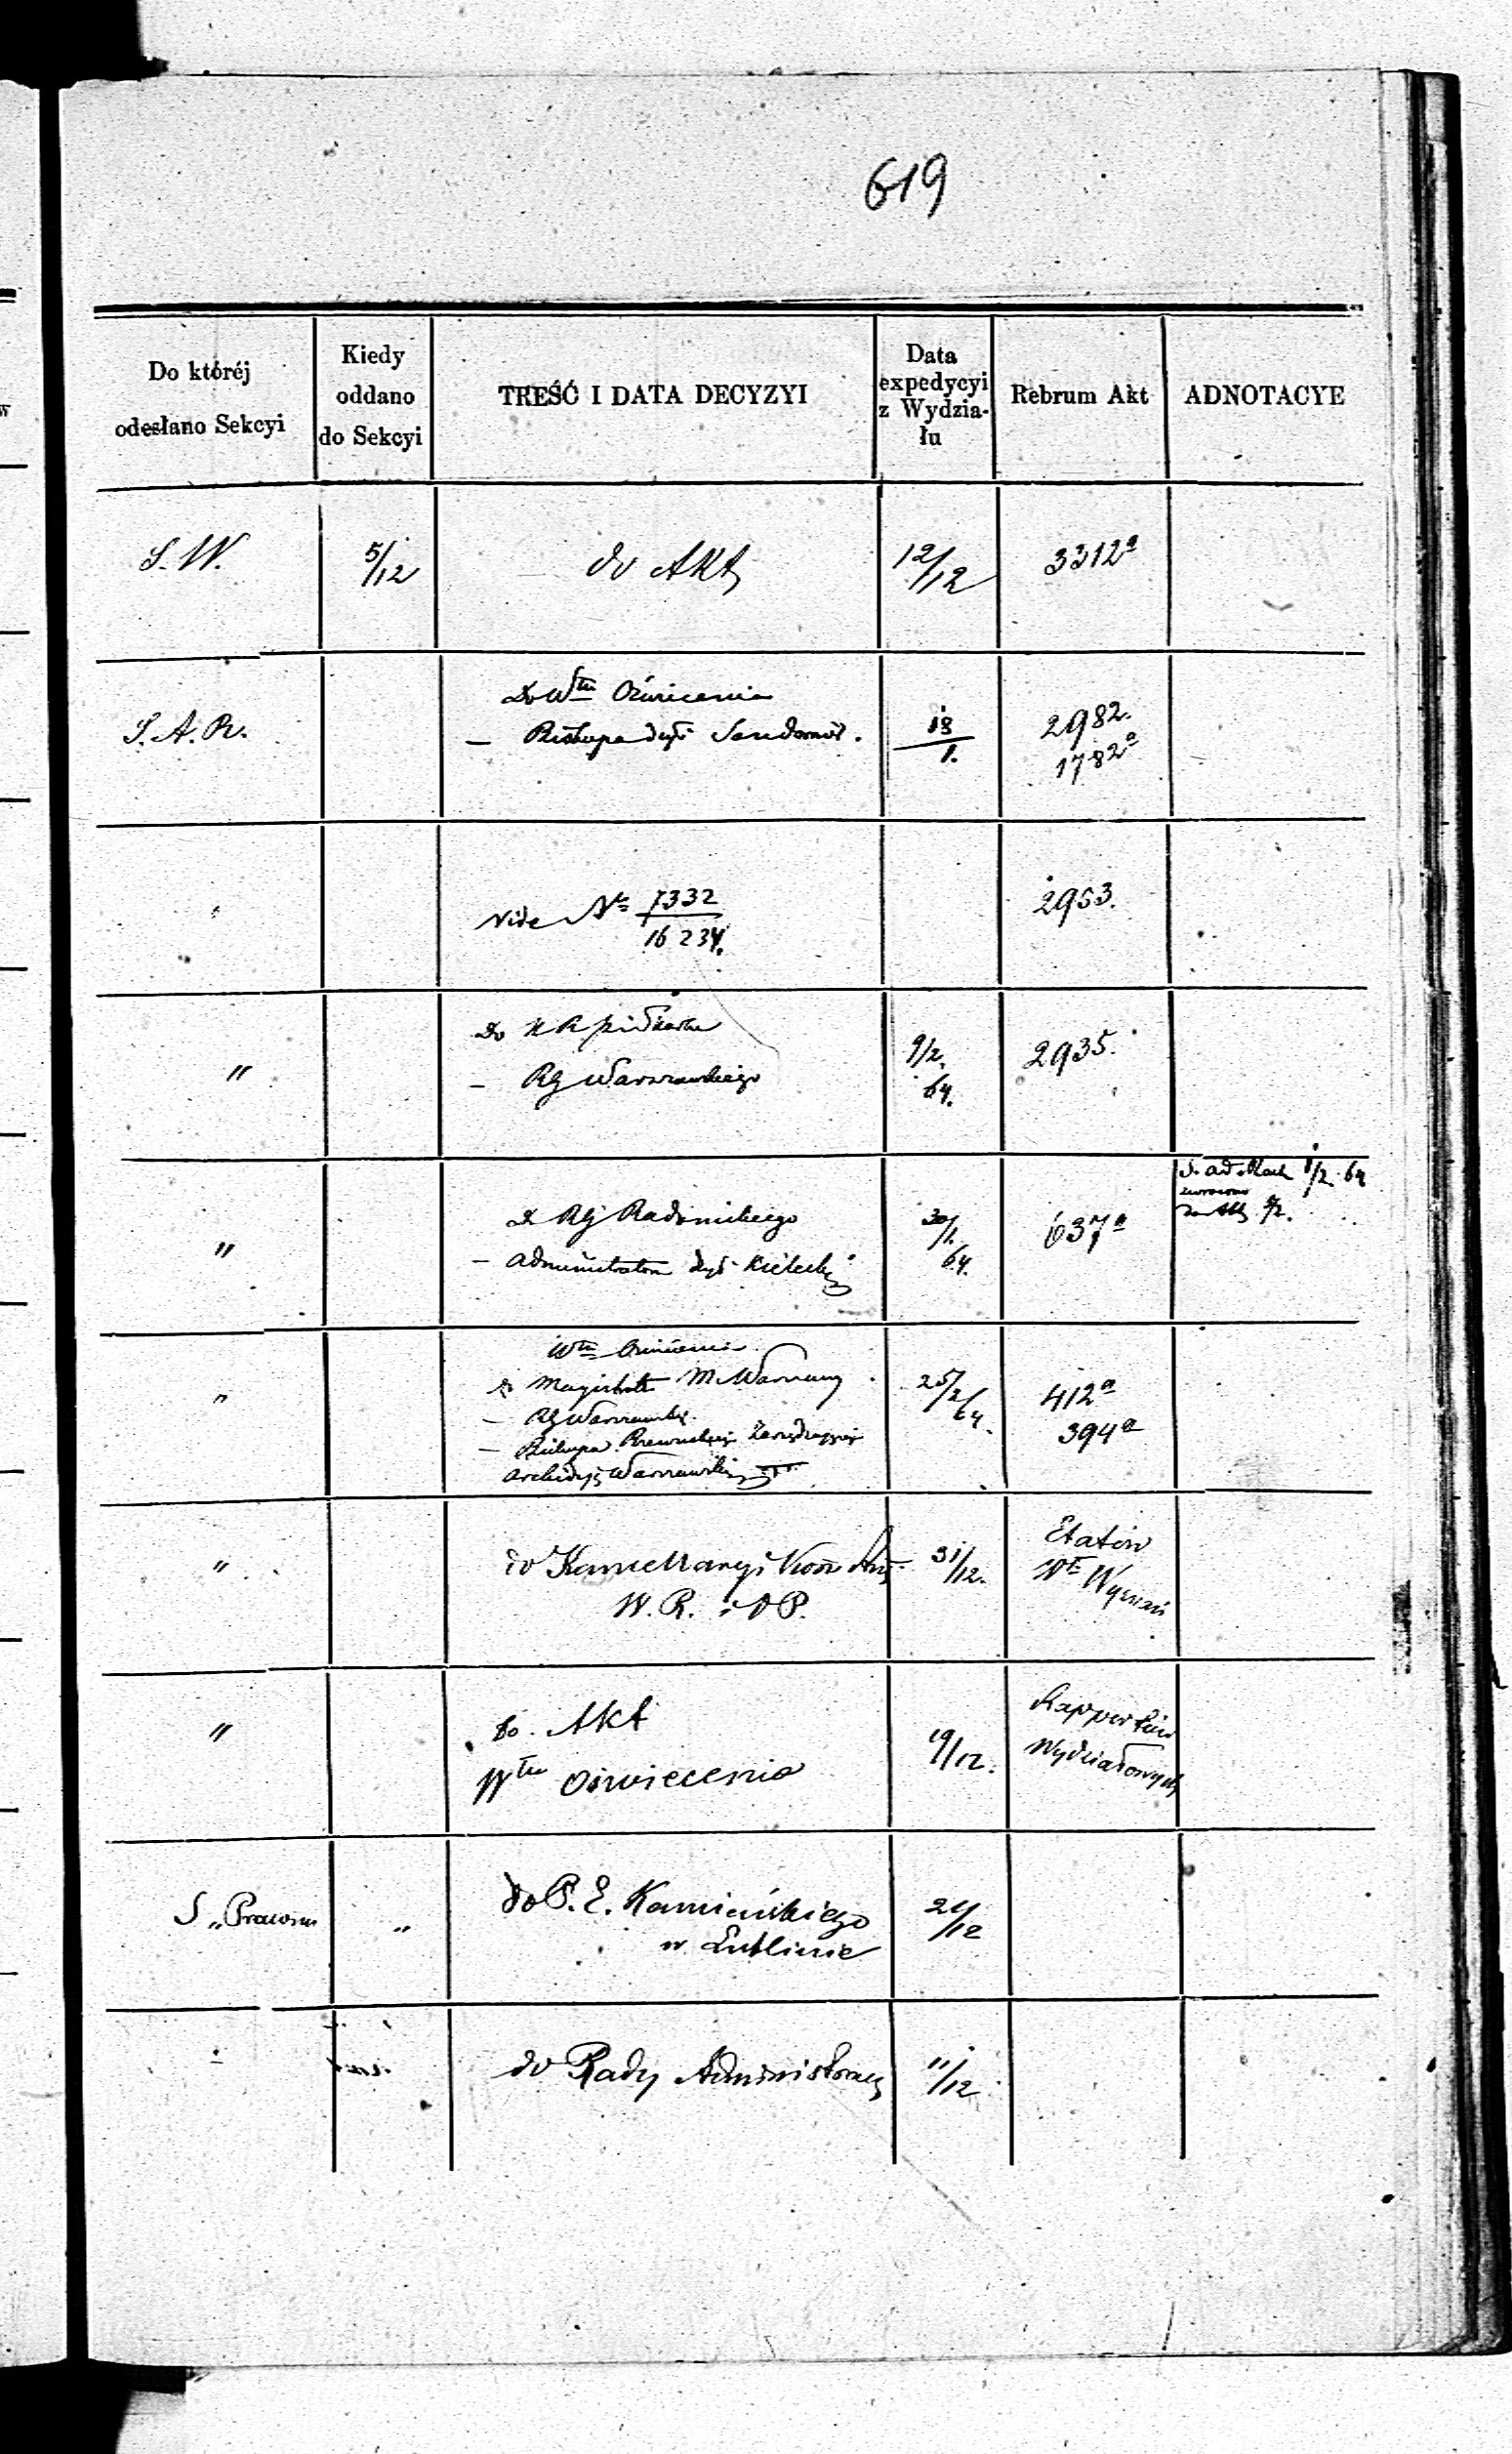 619
Do któréj
odesłano Sekcyi
Kiedy
oddano
do Sekcyi
TREŚĆ I DATA DECYZYI
Data
expedycyi
z Wydzia-
łu
Rebrum Akt
ADNOTACYE
S. W.
5/12
do Akt
12/12
3312a
S. A. R.
Do Wtu Oświecenia
— Biskupa dyś Sandomir.
18/1.
2982.
1782a
Vide No 7332
16 234.
2953.
"
Do
— RG Warszawskiego
9/2.
64.
2935.
"
RG Radomskiego
— Administratora dyś Kieleckiej
30/1.
64.
637a
1/2 64
"
Wtu Oświecenia
Magistratu M. Warszawy
— RG Warszawskę.
— Biskupa Zarządzającej
Archidyś Warszawskiej
25/2/
64.
412a
394a
"
do Kancellaryi
W. R. i O P.
31/12.
Etatów
Wyznań
"
do. Akt
Wtu Oświecenia
19/12.
Rapportów
Wydziałowych
S „ Prawna
„
do P. E. Kamieńskiego
w Lublinie
24/12
do Rady Administracy
11/12